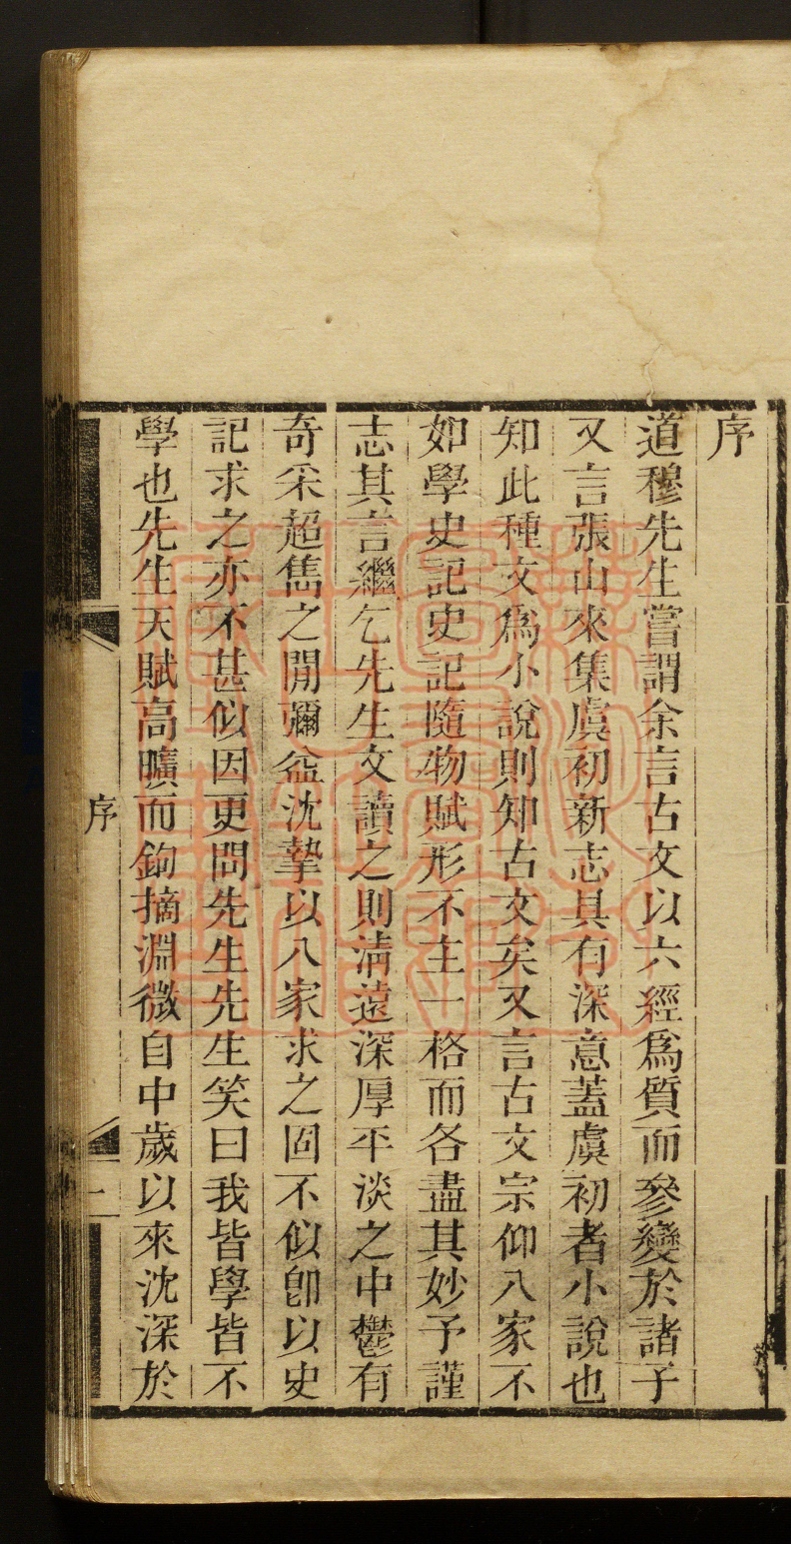 序
道穆先生嘗謂余言古文以六經爲質而參變於諸子
又言張山來集虞初新志具有深意蓋虞初者小說也
知此種文爲小說則知古文矣又言古文宗仰八家不
如學史記史記隨物賦形不主一格而各盡其妙予謹
志其言繼乞先生文讀之則清遠深厚平淡之中鬱有
奇采超雋之開彌益沈摯以八家求之固不似卽以史
記求之亦不甚似因更問先生先生笑曰我皆學皆不
學也先生天賦高曠而鉤摘淵微自中歲以來沈深於
序